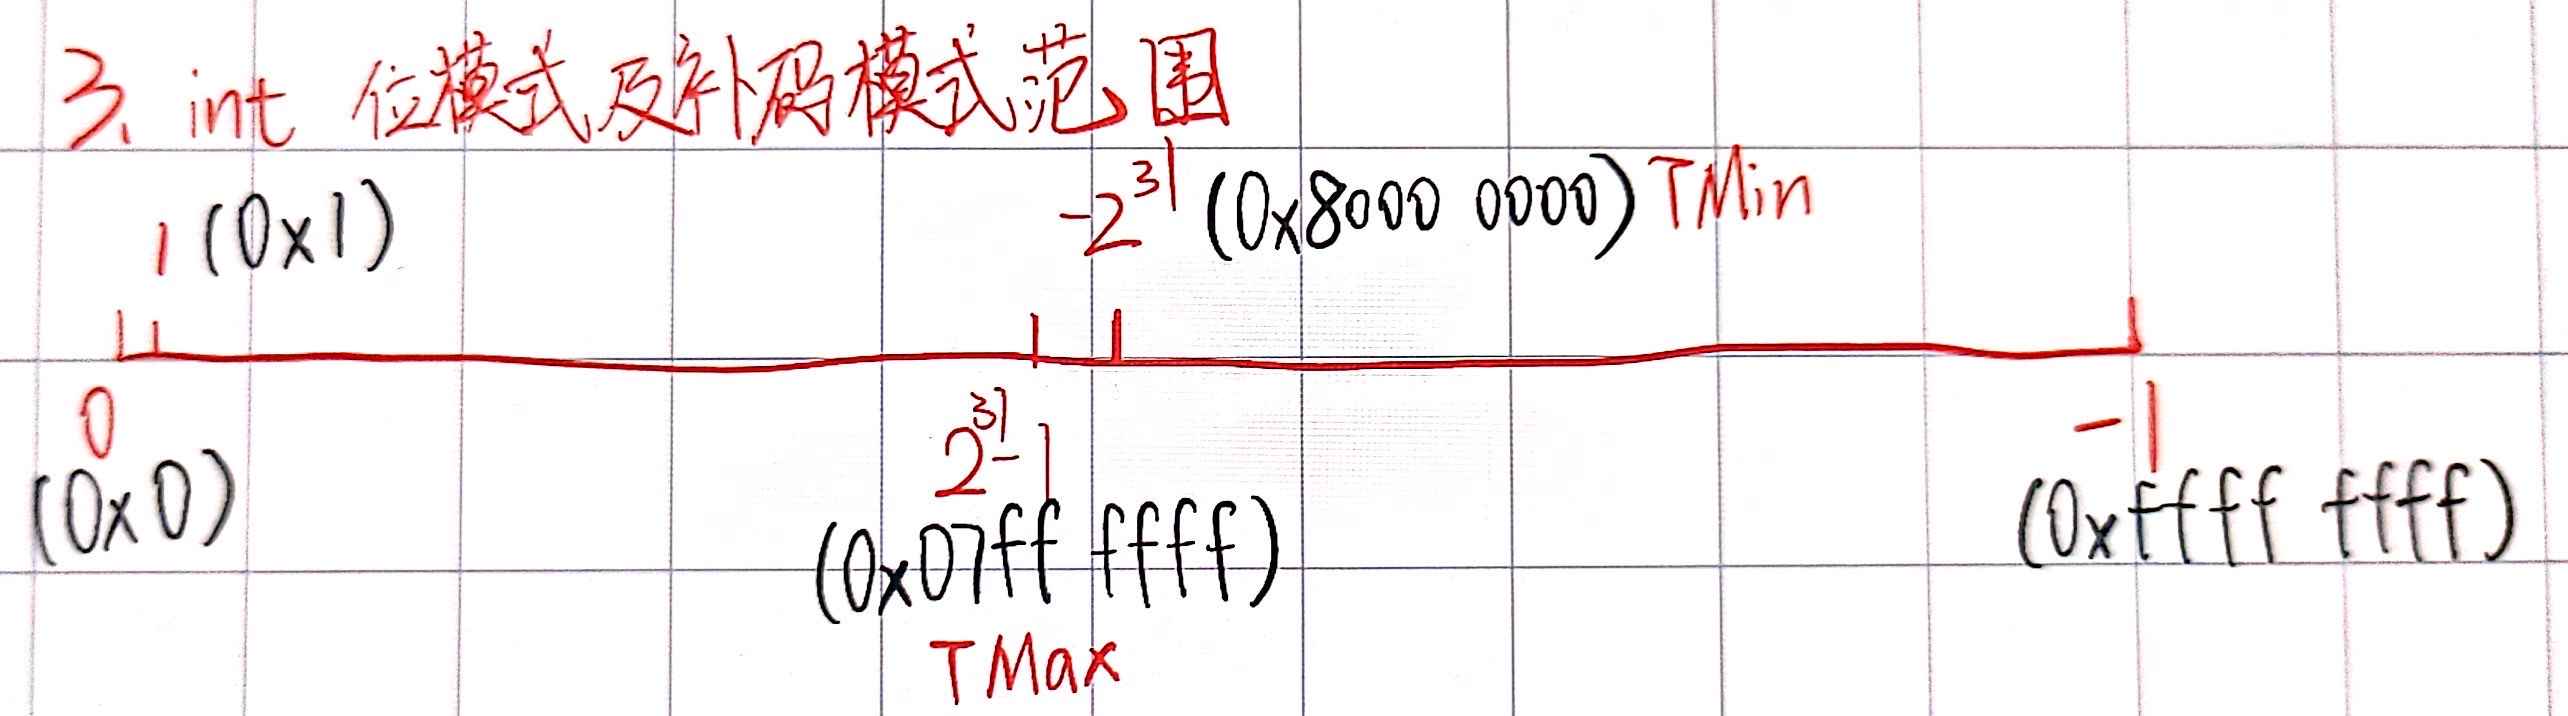 3. int 位模式及补码模式范围
1 (0x1)
-2³¹ (0x8000 0000) TMin
0
(0x0)
2³¹-1
(0x07ff ffff)
TMax
-1
(0xffff ffff)